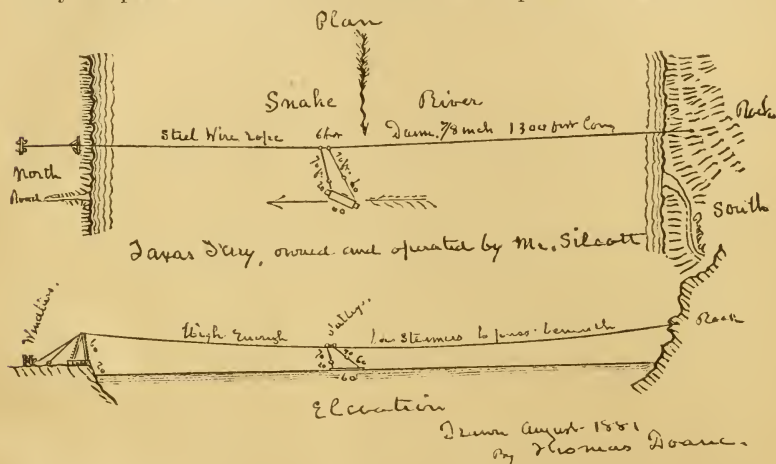 Plan
Snake River
Steel Wire rope 6 feet Diam. 7/8 inch 1300 feet long
Rocks
North
Road
70 ft.
20
60
South
Road
Taxas Fery, owned and operated by Mr. Silcott
Windlass.
High Enough
Valley.
for Steamers to pass beneath
Rock
60
20
20
70
60
20
60
Elevation
Drawn August 1881
By Thomas Doane.